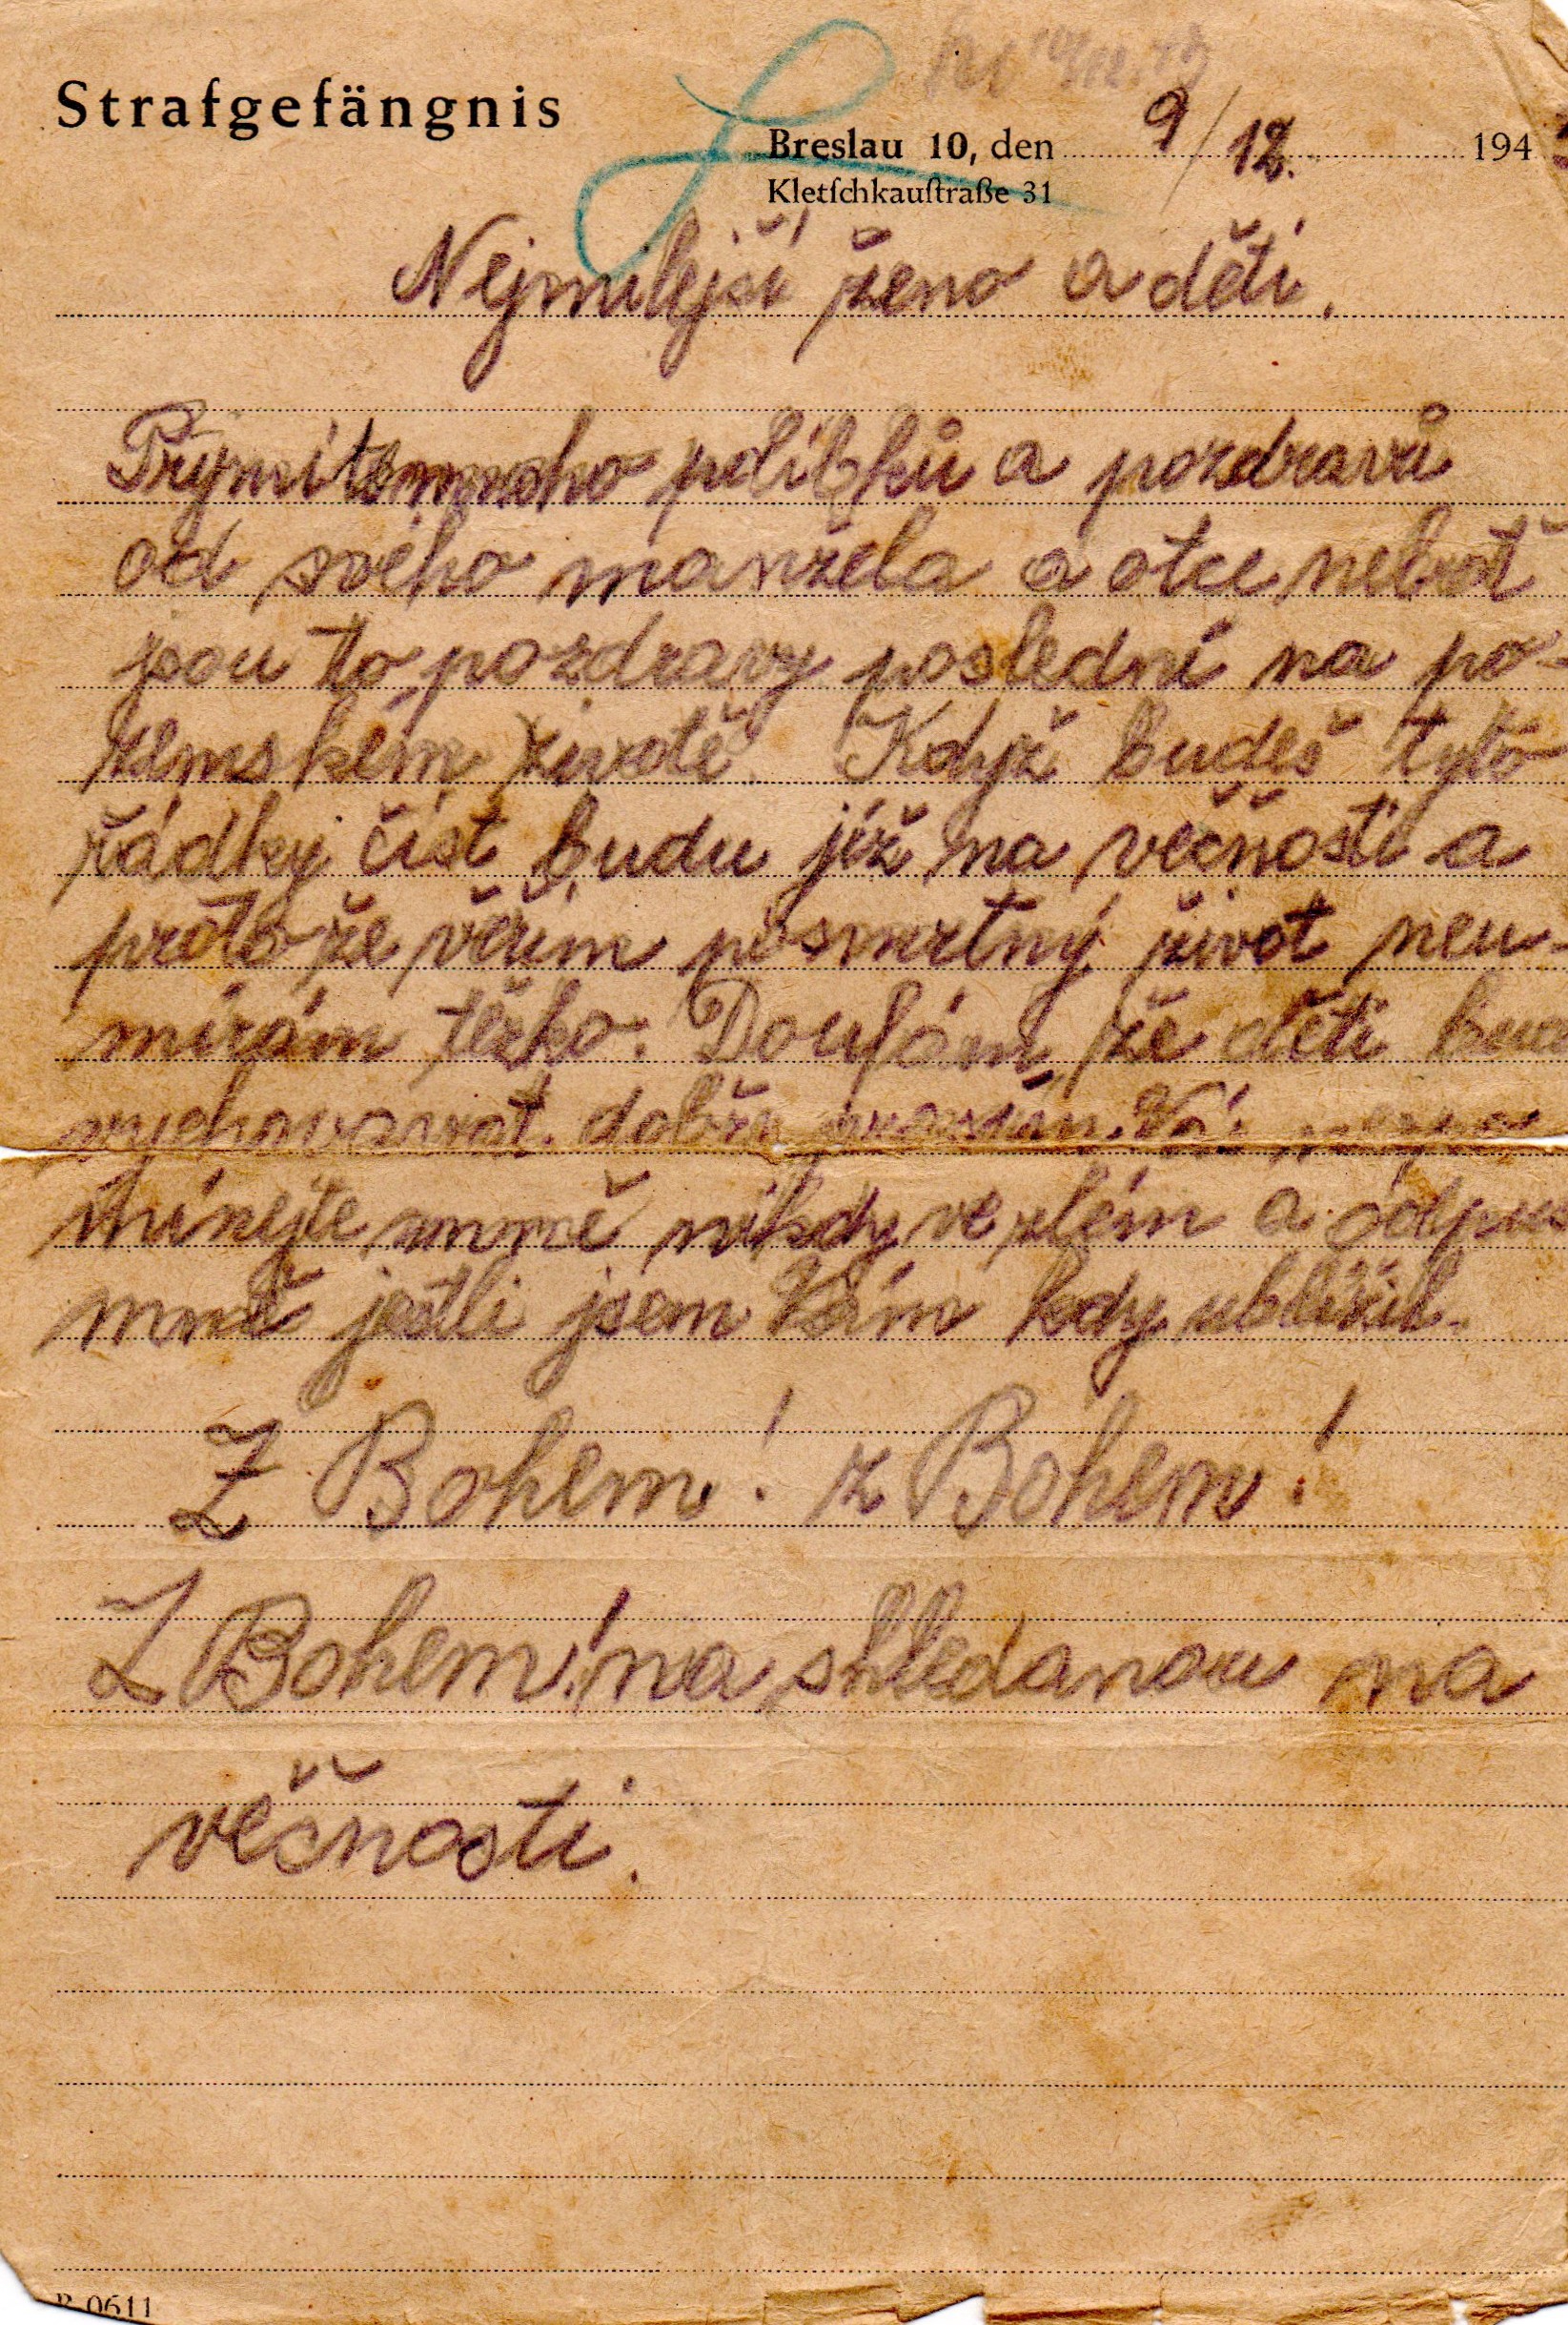 Strafgefängnis
Breslau 10, den 9/12. 194
Kletſchkauſtraße 31
Nejmilejší ženo a děti.
polibků a pozdravů
od svého manžela a otce neboť
jsou to pozdravy poslední na po-
zemském životě. Když budeš tyto
řádky číst budu již na věčnosti a
protože věřím posmrtný život neu-
mírám těžko. Doufám že děti
vychovavat. dobře
mínejte mně nikdy ve zlém a odpus
mně jestli jsem Vám kdy ublížil.
Z Bohem! z Bohem!
Z Bohem! na shledanou na
věčnosti.
0611